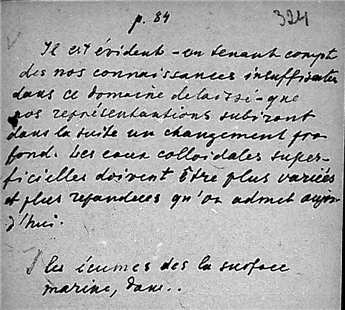 p. 84 324
Il est évident - en tenant compt
des nos connaissances insuffisantes
dans ce domaine delaissé - que
nos représentaations subiront
dans la suite un changement pro
fond. Les eaux colloidales super-
ficielles doivent être plus variées
et plus repandues qu'on admet aujour
d'hui.
les écumes des la surface
marine, dans..